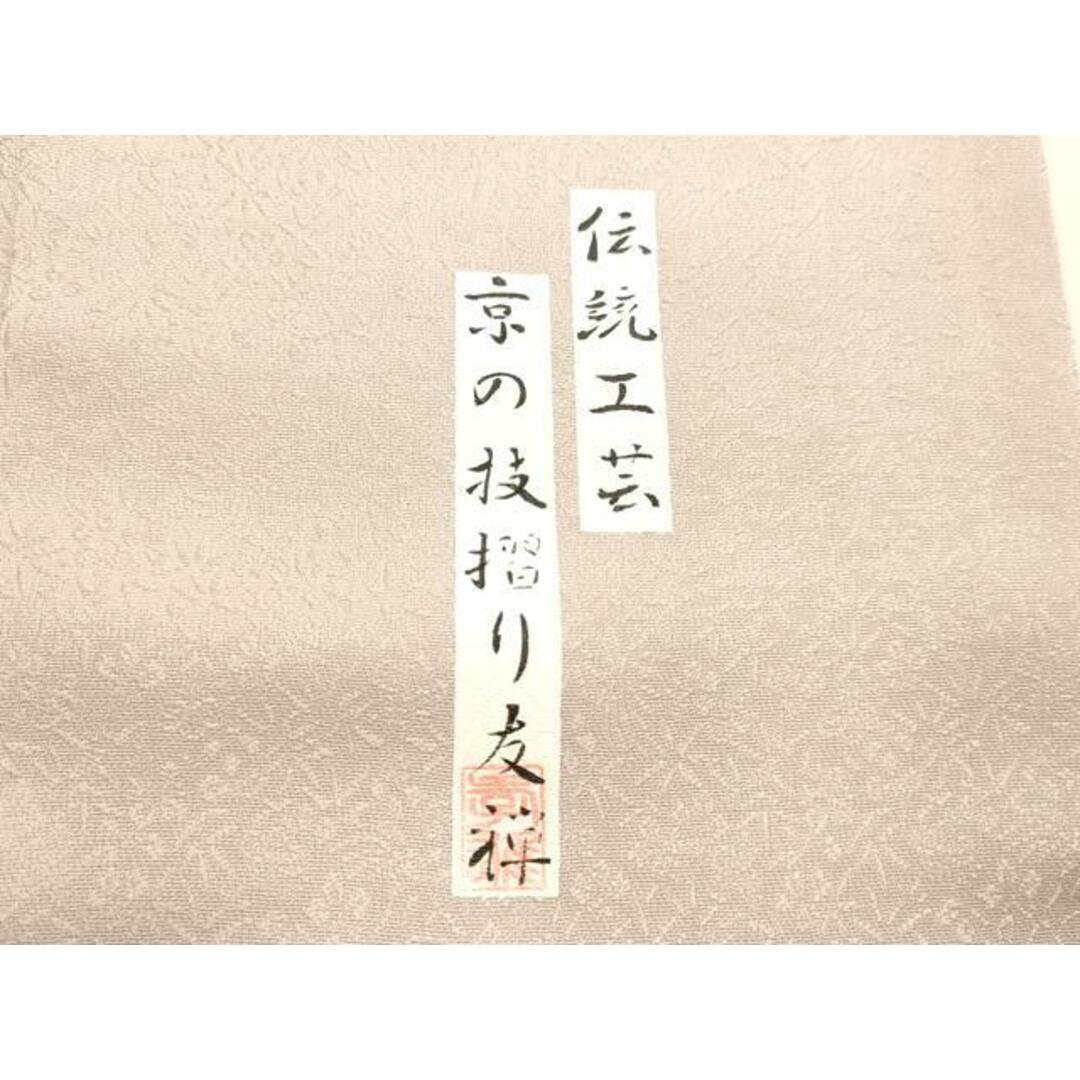 伝統工芸
京の技摺り友禅